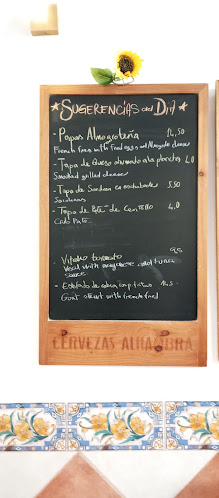 ★ SUGERENCIAS del DIA ★
- Papas Almogroteña 14,50
French fries with Fried eggs and Almogrote cheese
- Tapa de Queso ahumado a la plancha 4,0
Smoked grilled cheese
- Tapa de Sardina en 5.50
Sardinas
- Tapa de Paté de Centollo 4,0
Crab Pate
- Vitello tonnato 9,5
Veal with mayonese and tuna
sauce
- Estofado de cabra con papas 14,5
Goat stew with french fries
CERVEZAS ALHAMBRA